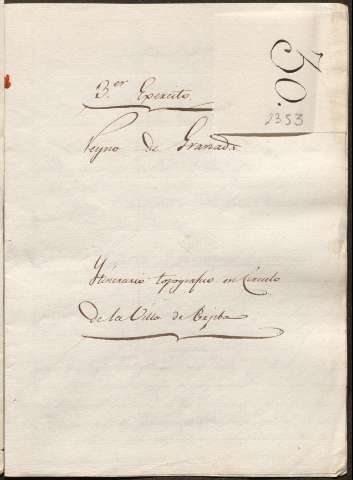 30.
2353
3.er Exercito.
Reyno de Granada
Ytinerario topografico en Circulo
de la Villa de